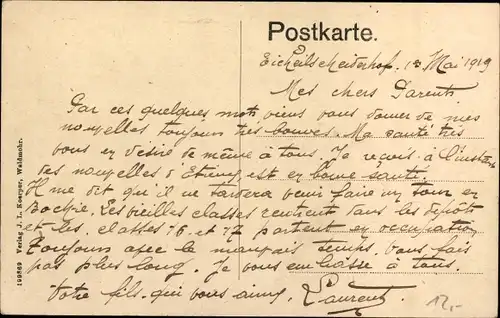 Postkarte.
Eichelscheiderhof. 13 Mai 1919
Mes chers Parents
Par ces quelques mots viens vous donner de mes
nouvelles toujours très bonnes. Ma santé très
vous en désire de même à tous. Je reçois à l'instant
des nouvelles d'Etienne est en bonne santé.
Il me dit qu'il ne tardera venir faire un tour en
Bochie. Les vieilles classes rentrent dans les dépôts
et les classes 16 et 17 partent en occupation
Toujours avec le mauvais temps. Vous fais
pas plus long. Je vous embrasse à tous.
Votre fils qui vous aime. Laurent
12,-
109868 Verlag J. L. Koerper, Waldmohr.